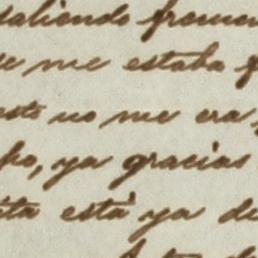 saliendo
e me estaba
esto no me era
po, ya gracias
ita está ya de